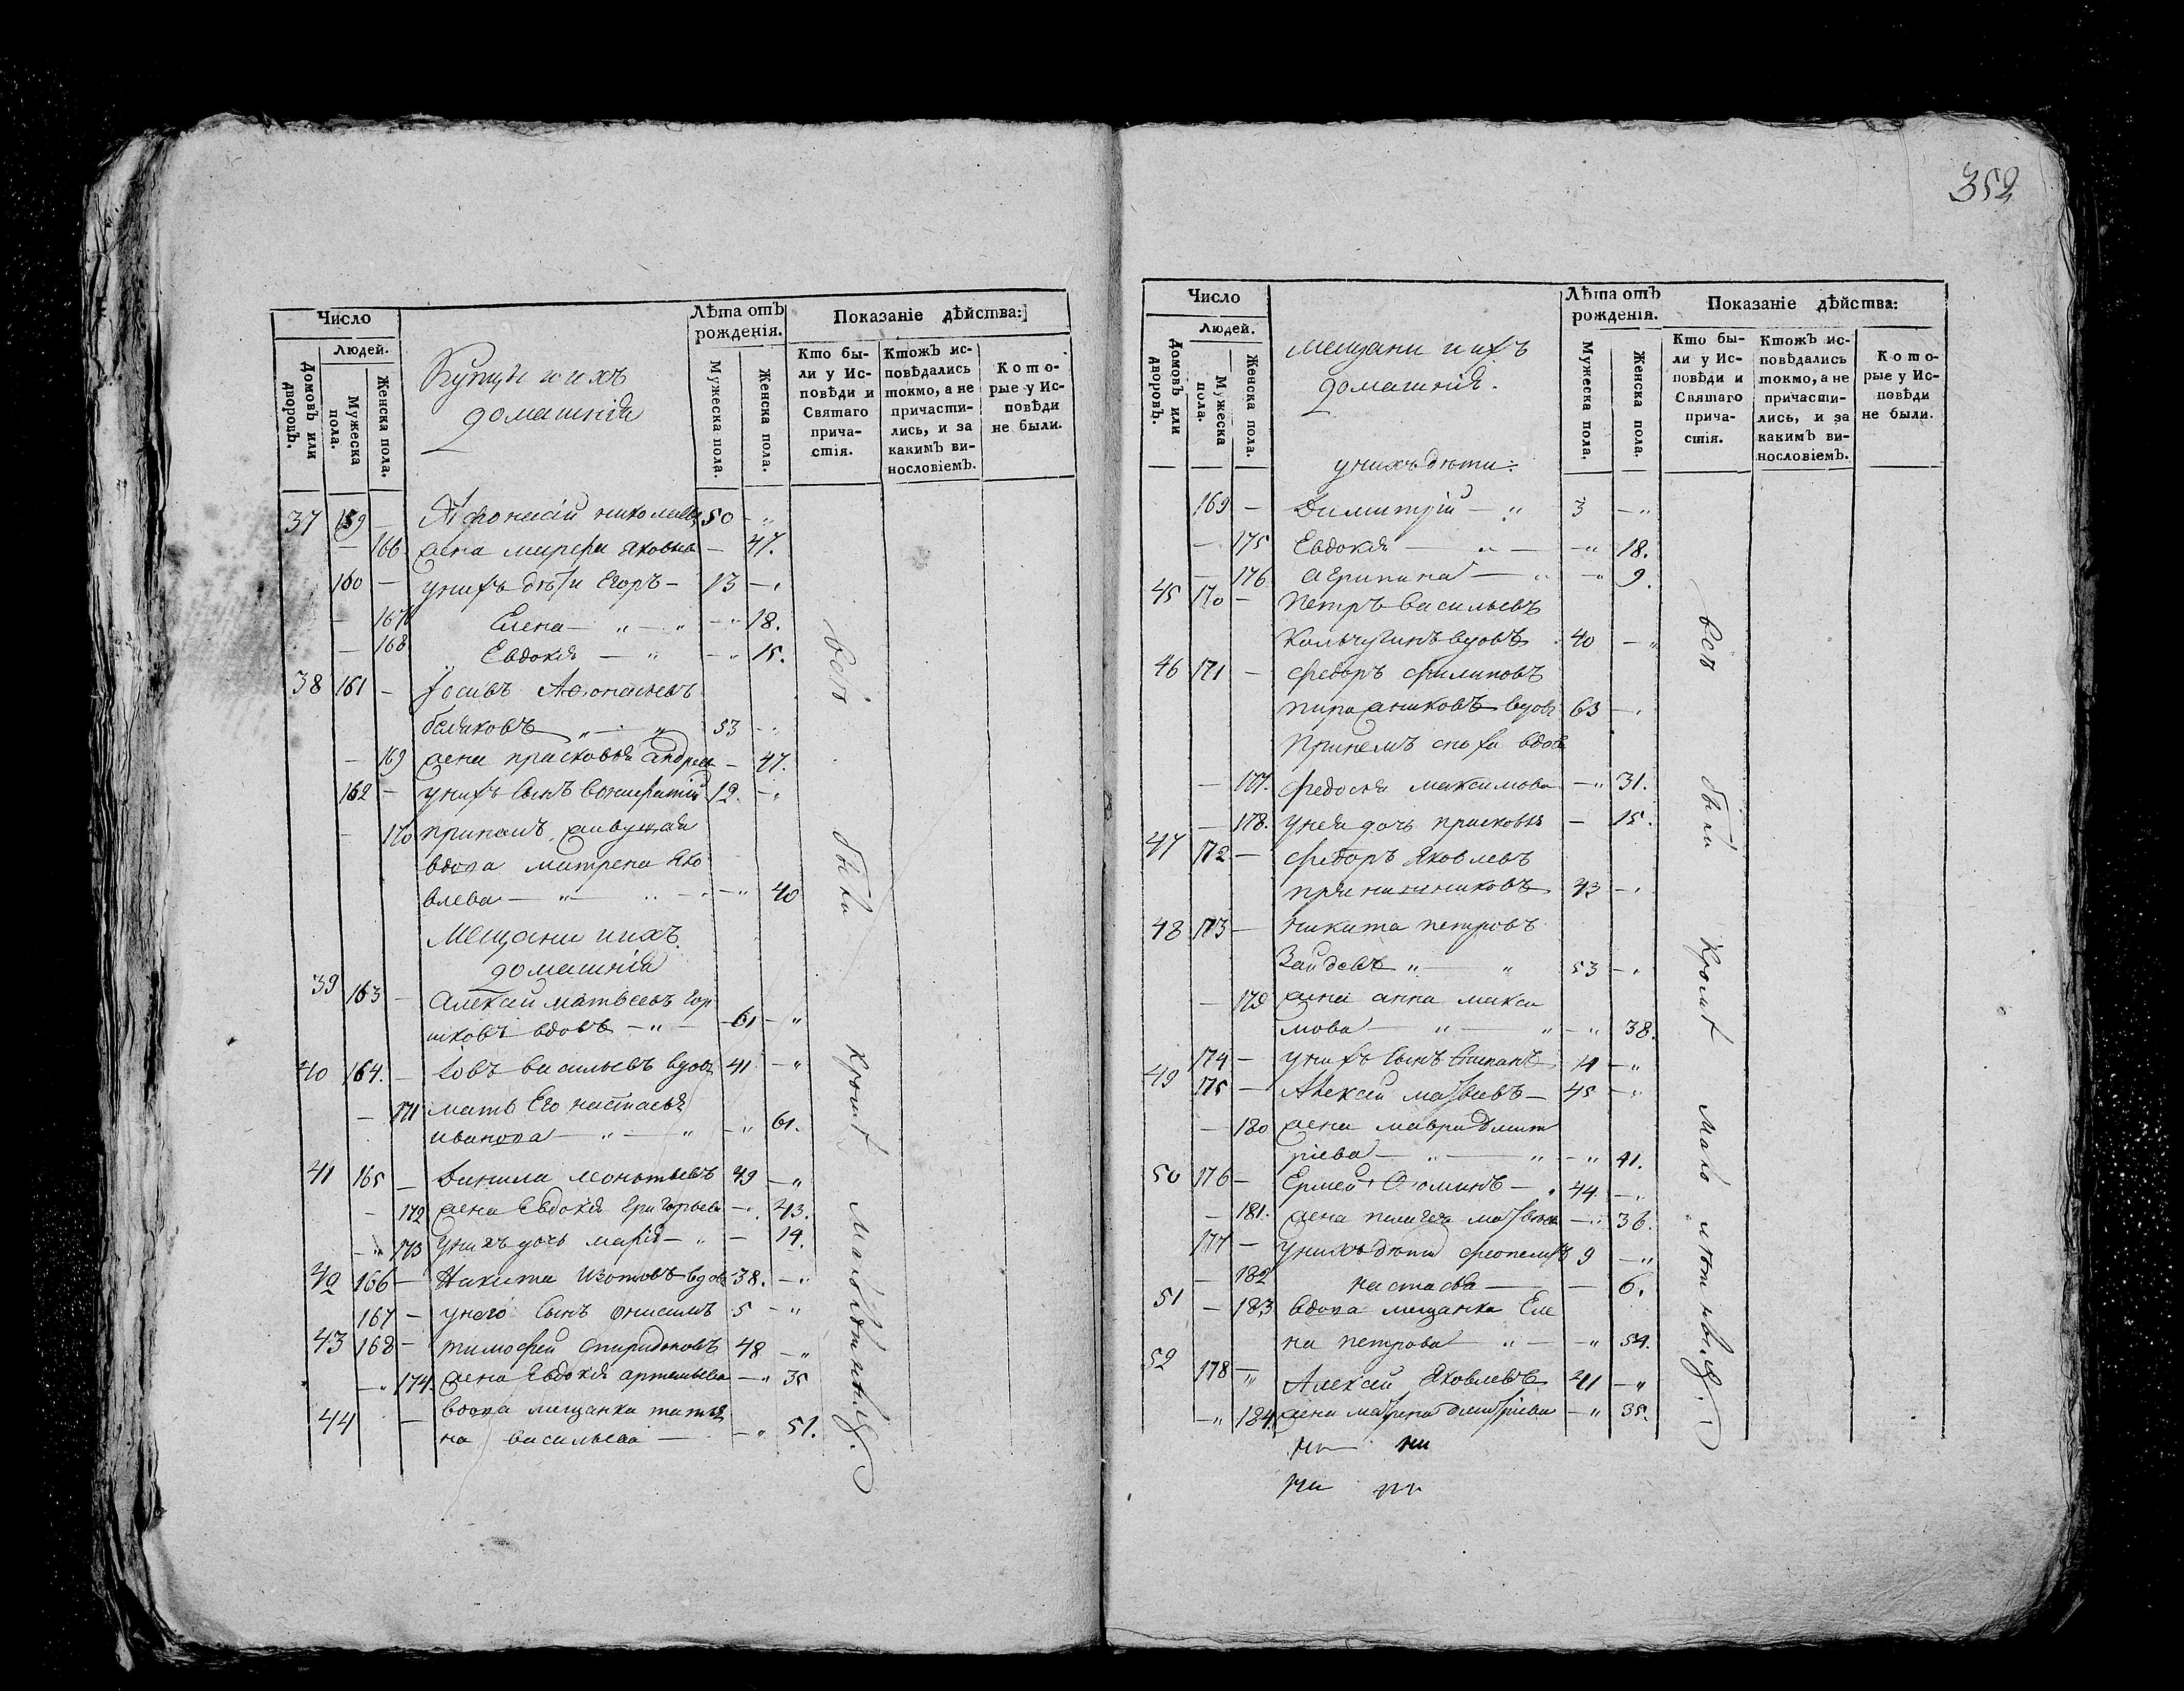 Число
Людей.
Домовъ или дворовъ.
Мужеска пола.
Женска пола.
Купцы и ихъ
домашнія
Лѣта отъ рожденія.
Мужеска пола.
Женска пола.
Показаніе дѣйства:
Кто бы-
ли у Ис-
повѣди и
Святаго
прича-
стія.
Ктожъ ис-
повѣдались
токмо, а не
причасти-
лись, и за
какимъ ви-
нословіемъ.
Кото-
рые у Ис-
повѣди
не были.
37 159 — Афонасій николаевъ 50 — "
— 166 жена марфа яковлева — 47.
160 — унихъ дѣти Егоръ — 13 — "
— 167 Елена — " — " — " 18.
— 168 Евдокія — " — " 15.
38 161 — Іосивъ Афонасьевъ
бѣляковъ " — " 53 — "
— 169 жена прасковья андрее — 47.
162 — унихъ сынъ вонифатій 12. — "
— 170 принемъ живущая
вдова матрена яко
влева — " — " 40
Мещани иихъ
домашнія
39 163 — Алексей матвеевъ гор
шковъ вдовъ — " — 61 — "
40 164. — Іовъ васильевъ вдовъ 41 — "
— 171 мать Его настасья
иванова — " — " — " 61.
41 165 — Данила леонтьевъ 49 — "
— 172 жена Евдокія григорьева — " 43.
— " 173 унихъ дочь марія — " — 14.
42 166 — Никита Изотовъ вдовъ 38. — "
167 — унего сынъ онисимъ 5 — "
43 168 — тимофей спиридоновъ 48 — "
— " 174. жена Евдокія артемьева — " 35
44 — вдова мещанка татья
на васильева — — " 51.
всѣ были кромѣ малолѣтныхъ.
352
Число
Людей.
Домовъ или дворовъ.
Мужеска пола.
Женска пола.
мещани иихъ
домашнія.
Лѣта отъ рожденія.
Мужеска пола.
Женска пола.
Показаніе дѣйства:
Кто бы-
ли у Ис-
повѣди и
Святаго
прича-
стія.
Ктожъ ис-
повѣдались
токмо, а не
причасти-
лись, и за
какимъ ви-
нословіемъ.
Кото-
рые у Ис-
повѣди
не были.
унихъ дѣти:
169 — Димитрій — " 3 — "
— 175 Евдокія — " — — " 18.
— 176 агрипина — " — " 9.
45 170 — петръ васильевъ
Кольчугинъ вдовъ 40 — "
46 171 — федоръ филиповъ
вдовъ 63 — "
Принемъ сноха вдова
— 177. федосья максимова — " 31.
— 178. унея дочь прасковья — 15.
47 172 — федоръ яковлевъ
пряничниковъ 43 — "
48 173 — никита петровъ
" — " 53 — "
— 179 жена анна макси
мова — " — " — " 38.
174 — унихъ сынъ степанъ 11 — "
49 175 — Алексей матвеевъ — 45 — "
— 180 жена мавра дмит
ріева — " — " — " 41.
50 176 — Ермей Фоминъ — " 44 — "
— 181. жена пелагея матвеева — " 36.
177 — унихъ дѣти феопемптъ 9 — "
— 182 настасья — — 6.
51 — 183 вдова мещанка Еле
на петрова — " — — " 54.
52 178 — " Алексей яковлевъ 41 — "
— " 184. жена матрена дмитріева — " 35.
всѣ были кромѣ малолѣтныхъ.